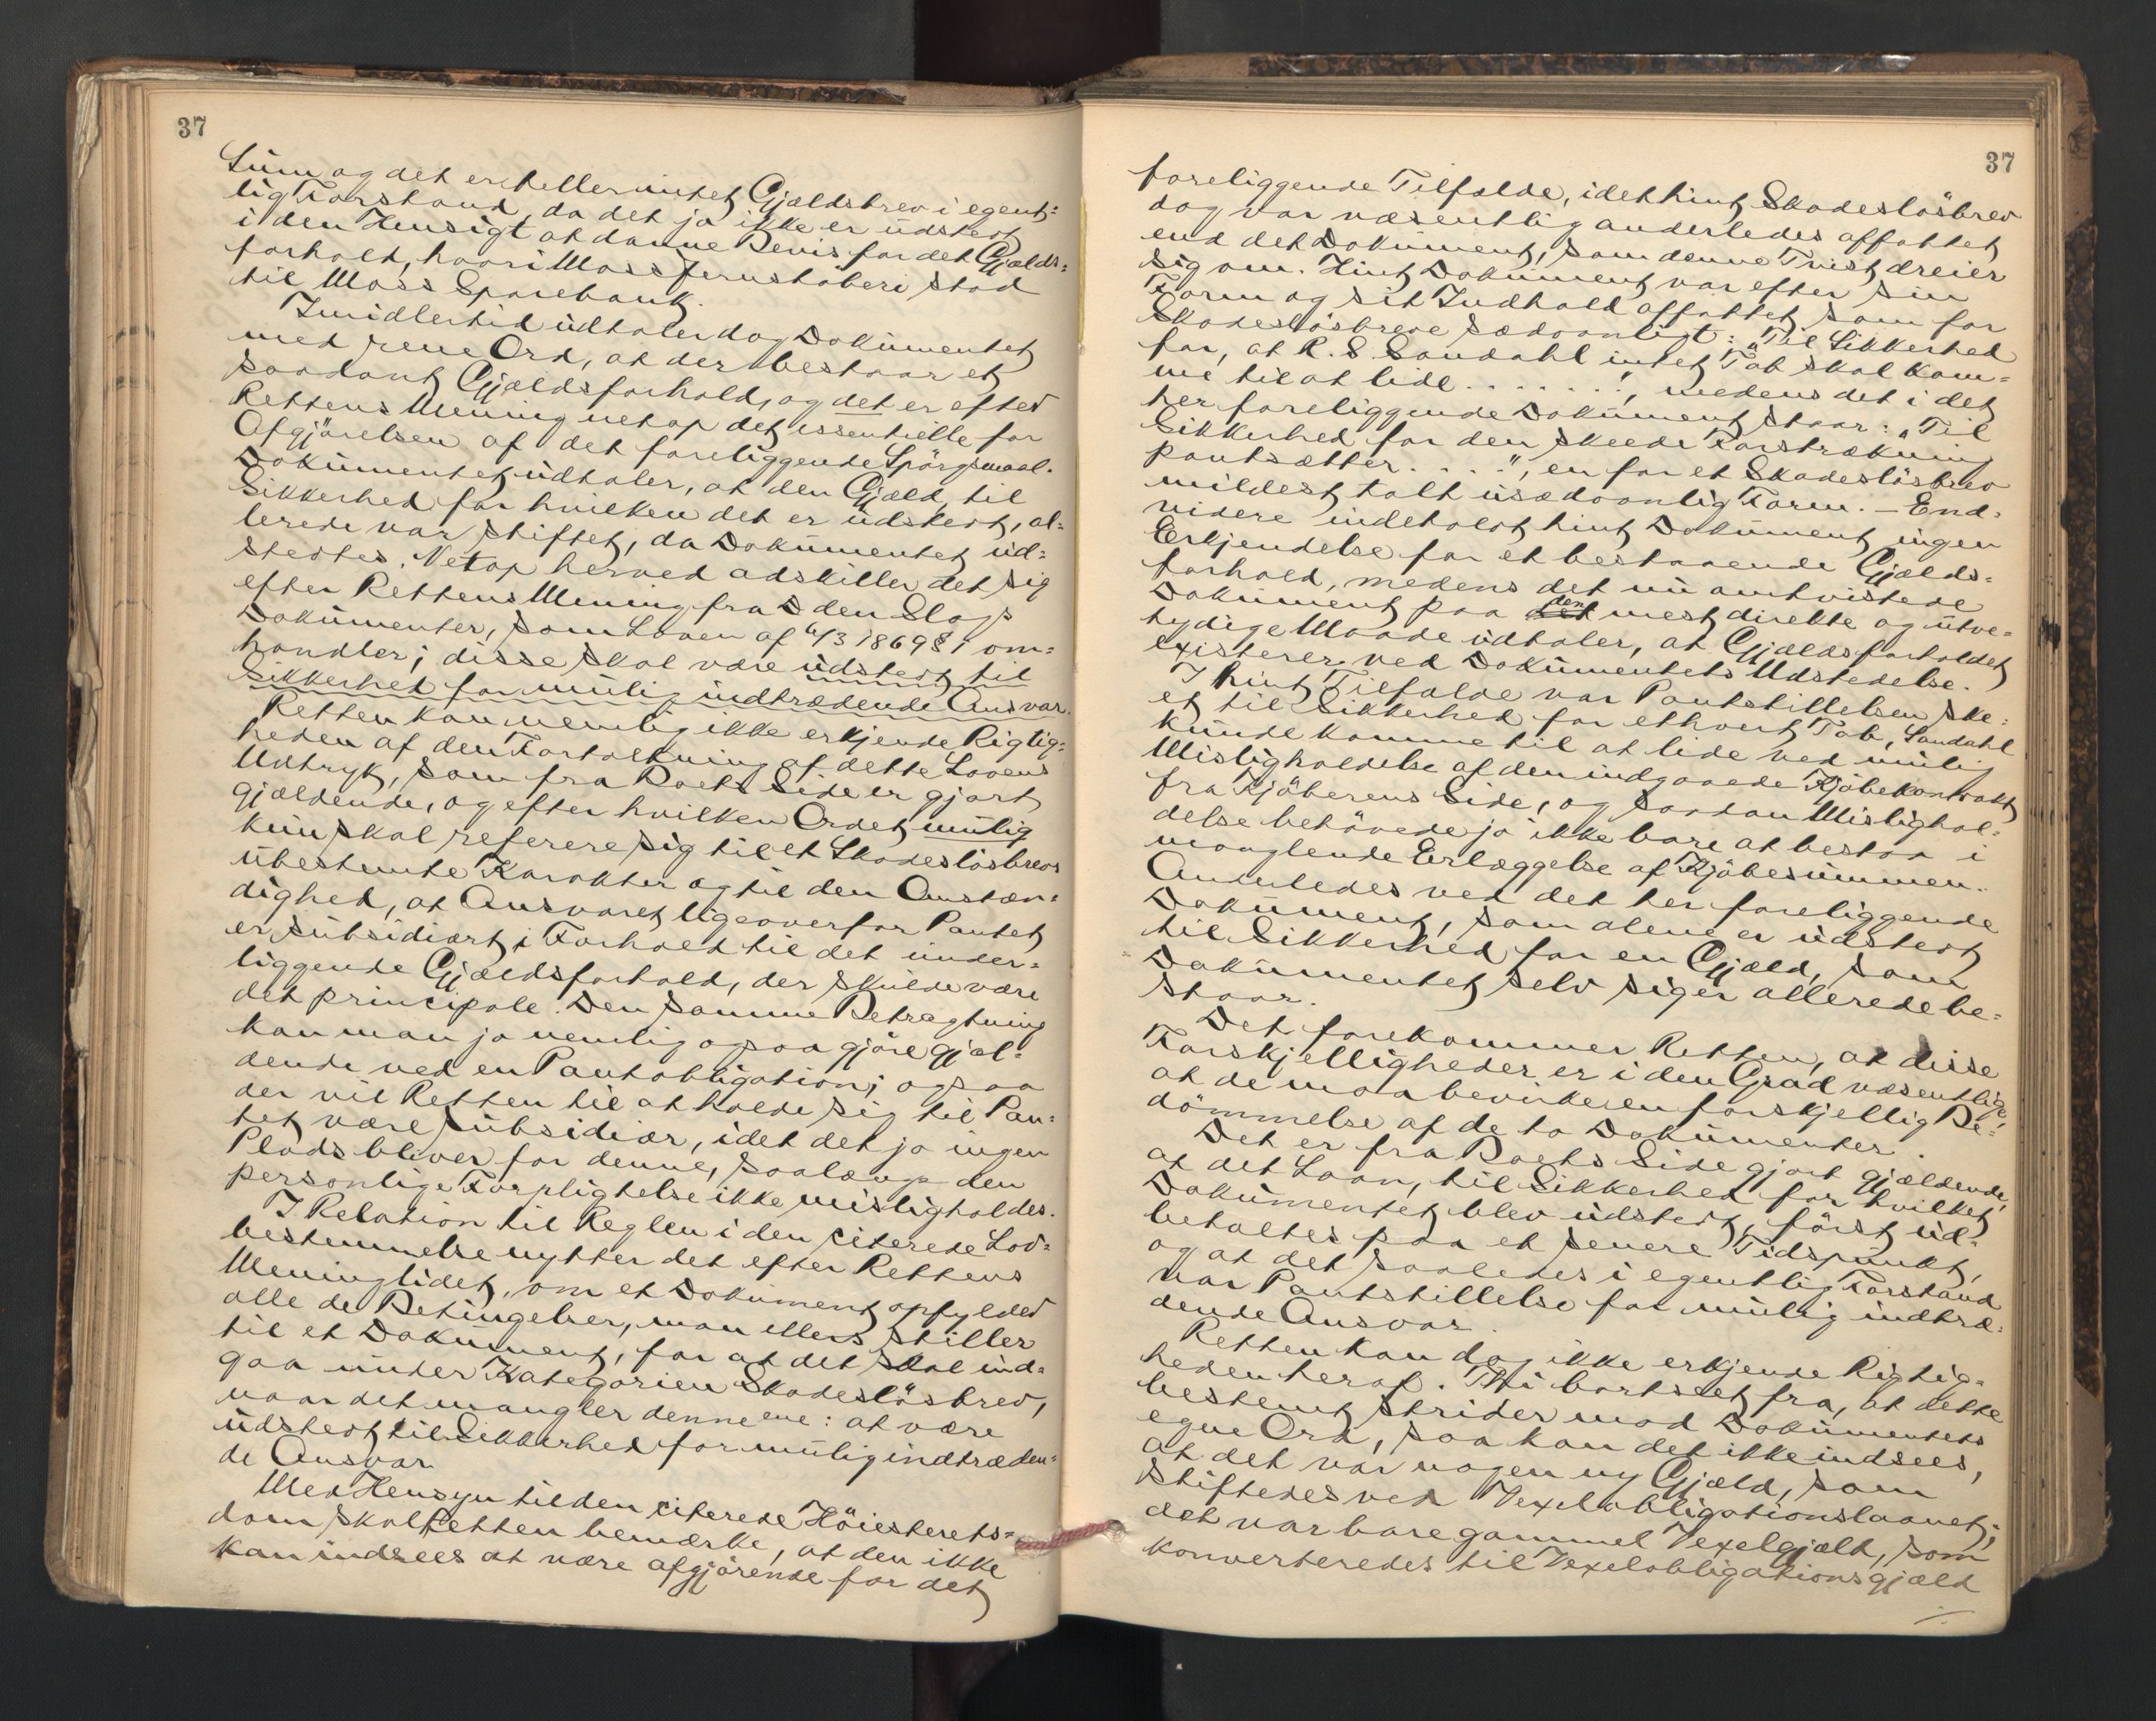 37
Sum og det er heller intet Gjældsbrev i egent=
lig Forstand, da det jo ikke er udstedt
i den Hensigt at danne Bevis for det Gjælds=
forhold, hvori Moss Jernstøberi stod
til Moss Sparebank.
Imidlertid udtaler dog Dokumentet
med rene Ord, at der bestaar et
saadant Gjældsforhold, og det er efter
Rettens Mening netop det essentielle for
Afgjørelsen af det foreliggende Spørgsmaal.
Dokumentet udtaler, at den Gjæld, til
Sikkerhed for hvilken det er udstedt, al=
lerede var stiftet, da Dokumentet ud=
stedtes. Netop herved adskiller det sig
efter Rettens Mening fra den Slags
Dokumenter, som Loven af 6/3 1869 § 1 om=
handler; disse skal være udstedt til
Sikkerhed for mulig indtrædende Ansvar.
Retten kan nemlig ikke erkjende Rigtig=
heden af den Fortolkning af dette Lovens
Udtryk, som fra Boets Side er gjort
gjældende, og efter hvilken Ordet mulig
kun skal referere sig til et Skadesløsbrevs
ubestemte Karakter og til den Omstæn=
dighed, at Ansvaret ligeoverfor Pantet
er subsidiært i Forhold til det under=
liggende Gjældsforhold, der skulde være
det principale. Den samme Betragtning
kan man jo nemlig ogsaa gjøre gjæl=
dende ved en Pantobligation; ogsaa
der vil Retten til at holde sig til Pan=
tet være subsidiær, idet det jo ingen
Plads bliver for denne, saalænge den
personlige Forpligtelse ikke misligholdes.
I Relation til Reglen i den citerede Lov=
bestemmelse nytter det efter Rettens
Mening lidet, om et Dokument opfylder
alle de Betingelser, man ellers stiller
til et Dokument, for at det skal ind=
gaa under Kategorien Skadesløsbrev,
naar det mangler denne ene: at være
udstedt til Sikkerhed for mulig indtræden=
de Ansvar.
Med Hensyn til den citerede Høiesterets=
dom skal Retten bemærke, at den ikke
kan indsees at være afgjørende for det
37
foreliggende Tilfælde, idet hint Skadesløsbrev
dog var væsentlig anderledes affattet
end det Dokument, som denne Tvist dreier
sig om. Hint Dokument var efter sin
Form og sit Indhold affattet som for
Skadesløsbreve sædvanligt: "Til Sikkerhed
for, at R. S. Sandahl intet Tab skal kom=
me til at lide . . . . . .", medens det i det
her foreliggende Dokument staar: "Til
Sikkerhed for den skeede Forstrækning
pantsætter. . . .", en for et Skadesløsbrev
mildest talt usædvanlig Form. – End=
videre indeholdt hint Dokument ingen
Erkjendelse for et bestaaende Gjælds=
forhold, medens det nu omtvistede
Dokument paa det den mest direkte og utve=
tydige Maade udtaler, at Gjældsforholdet
existerer ved Dokumentets Udstedelse.
I hint Tilfælde var Pantstillelsen ske=
et til Sikkerhed for ethvert Tab, Sandahl
kunde komme til at lide ved mulig
Misligholdelse af den indgaaede Kjøbekontrakt
fra Kjøberens Side, og saadan Mislighol=
delse behøvede jo ikke bare at bestaa i
manglende Erlæggelse af Kjøbesummen.
Anderledes ved det her foreliggende
Dokument, som alene er udstedt
til Sikkerhed for en Gjæld, som
Dokumentet selv siger allerede be=
staar.
Det forekommer Retten, at disse
Forskjelligheder er i den Grad væsentlige,
at de maa bevirke en forskjellig Be=
dømmelse af de to Dokumenter.
Det er fra Boets Side gjort gjældende,
at det Laan, til Sikkerhed for hvilket
Dokumentet blev udstedt, først ud=
betaltes paa et senere Tidspunkt,
og at det saaledes i egentlig Forstand
var Pantstillelse for mulig indtræ=
dende Ansvar.
Retten kan dog ikke erkjende Rigtig=
heden heraf. Thi bortseet fra, at dette
bestemt strider mod Dokumentets
egne Ord, saa kan det ikke indsees,
at det var nogen ny Gjæld, som
stiftedes ved Vexelobligationslaanet;
det var bare gammel Vexelgjæld, som
konverteredes til Vexelobligationsgjæld